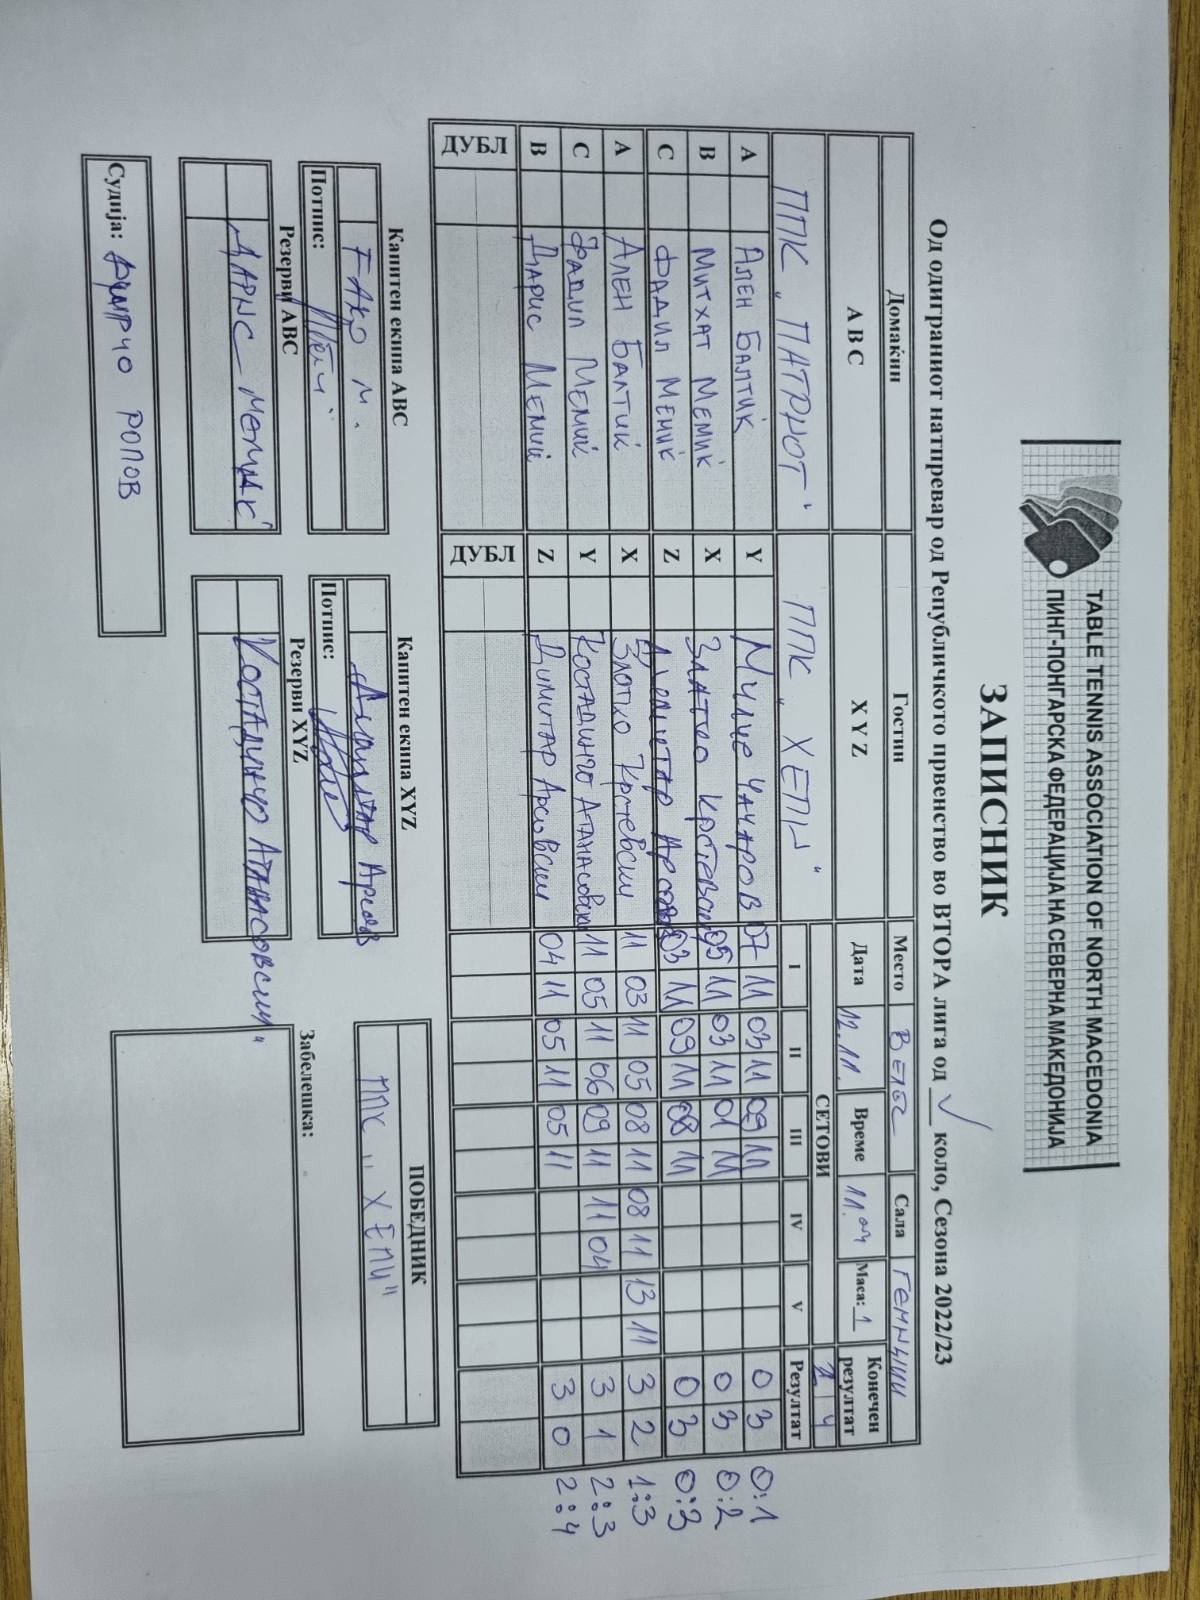 TABLE TENNIS ASSOCIATION OF NORTH MACEDONIA
ПИНГ-ПОНГАРСКА ФЕДЕРАЦИЈА НА СЕВЕРНА МАКЕДОНИЈА
ЗАПИСНИК
Од одиграниот натпревар од Републичкого првенство во ВТОРА лига од V коло, Сезона 2022/23
Домаќин Гостин Место Велес Сала Гемиџии Конечен резултат
A B C X Y Z Дата 12.11. Време 11.04 Маса: 1
ППК „ПАТРИОТ" ППК „ХЕПИ" СЕТОВИ 2 4
I II III IV V Резултат
A АЛЕН БАЛТИЌ Y МИЛЧЕ ЧАЧАРОВ 07 11 03 11 09 11 0 3 0:1
B МИТХАТ МЕМИЌ X ЗЛАТКО КРСТЕВСКИ 05 11 03 11 01 11 0 3 0:2
C ФАДИЛ МЕМИЌ Z ДИМИТАР 03 11 09 11 08 11 0 3 0:3
A АЛЕН БАЛТИЌ X ЗЛАТКО КРСТЕВСКИ 11 03 11 05 08 11 08 11 13 11 3 2 1:3
C ФАДИЛ МЕМИЌ Y КОСТАДИНЧО АТАНАСОВСКИ 11 05 11 06 09 11 11 04 3 1 2:3
B ДАРИС МЕМИЌ Z ДИМИТАР АРСОВСКИ 04 11 05 11 05 11 3 0 2:4
ДУБЛ ДУБЛ
Капитен екипа ABC Капитен екипа XYZ ПОБЕДНИК
М. ППК „ХЕПИ"
Потпис: Потпис:
Резерви ABC Резерви XYZ Забелешка:
ДАРИС МЕМИЌ КОСТАДИНЧО АТАНАСОВСКИ
Судија: ПОПОВ